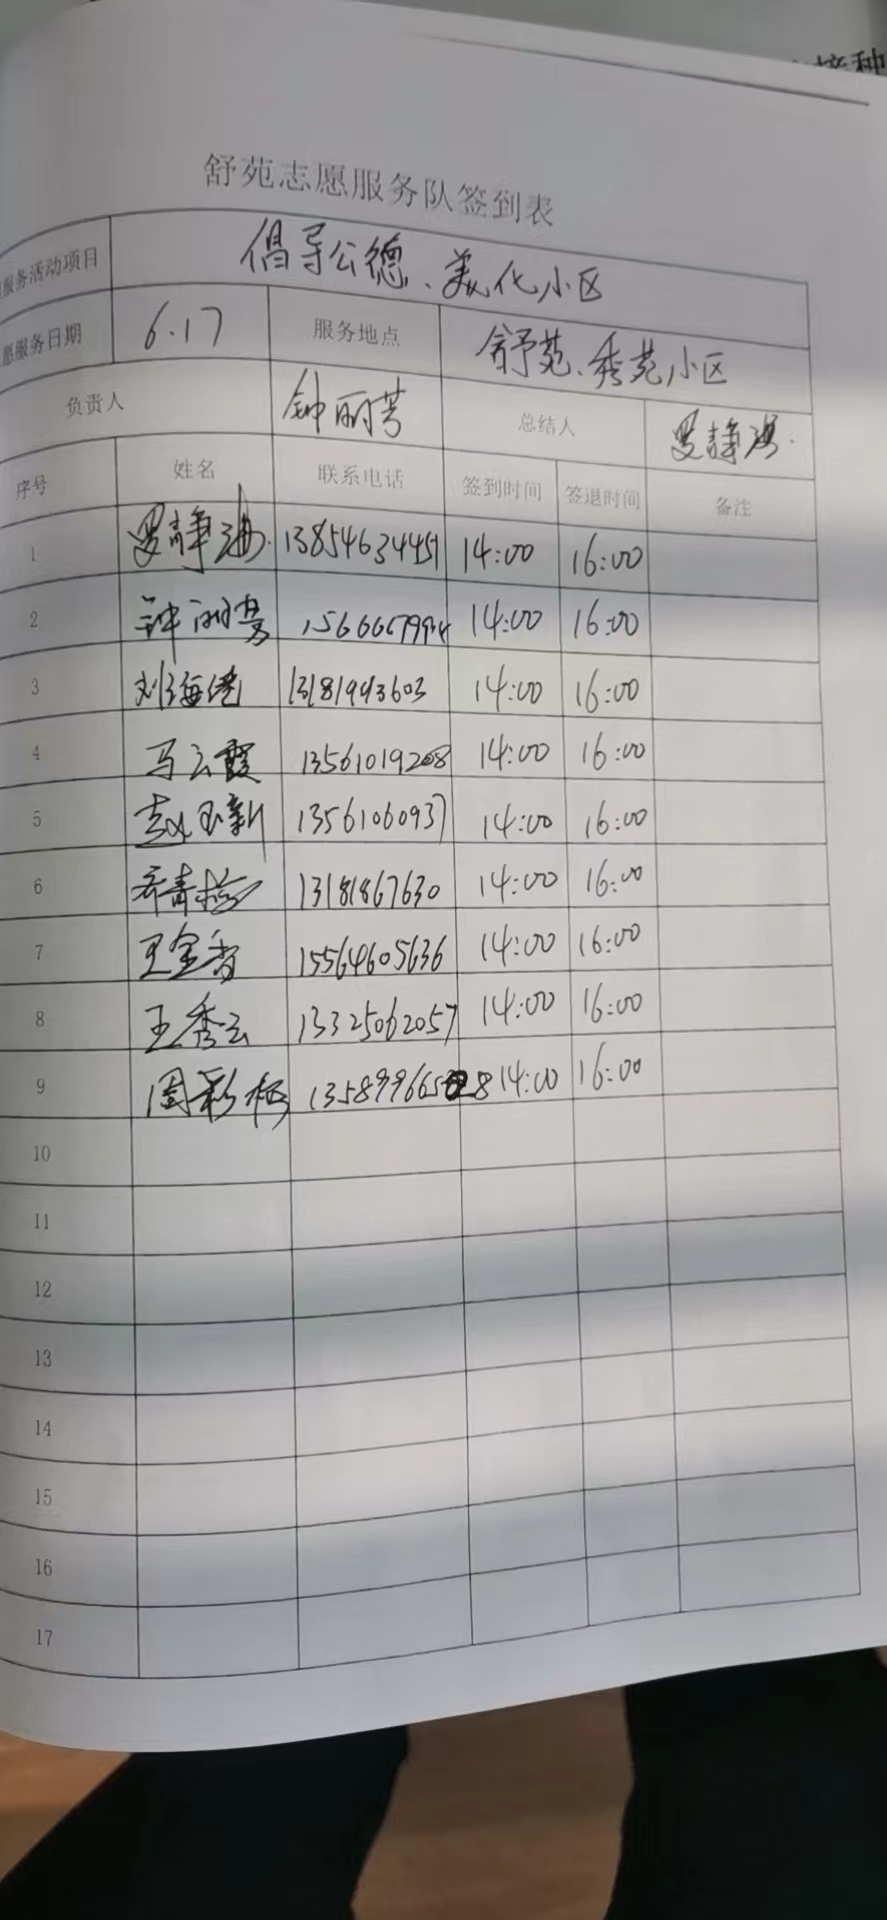 接种
舒苑志愿服务队签到表
服务活动项目 倡导公德、美化小区
愿服务日期 6.17 服务地点 舒苑、秀苑小区
负责人 钟丽芳 总结人 罗静海
序号 姓名 联系电话 签到时间 签退时间 备注
1 罗静海 13854634451 14:00 16:00
2 钟丽芳 14:00 16:00
3 刘海 13181993603 14:00 16:00
4 马云霞 13561019208 14:00 16:00
5 赵玉新 13561060937 14:00 16:00
6 齐青 13181867630 14:00 16:00
7 王金香 15564605636 14:00 16:00
8 王秀云 13325062057 14:00 16:00
9 周彩 14:00 16:00
10
11
12
13
14
15
16
17